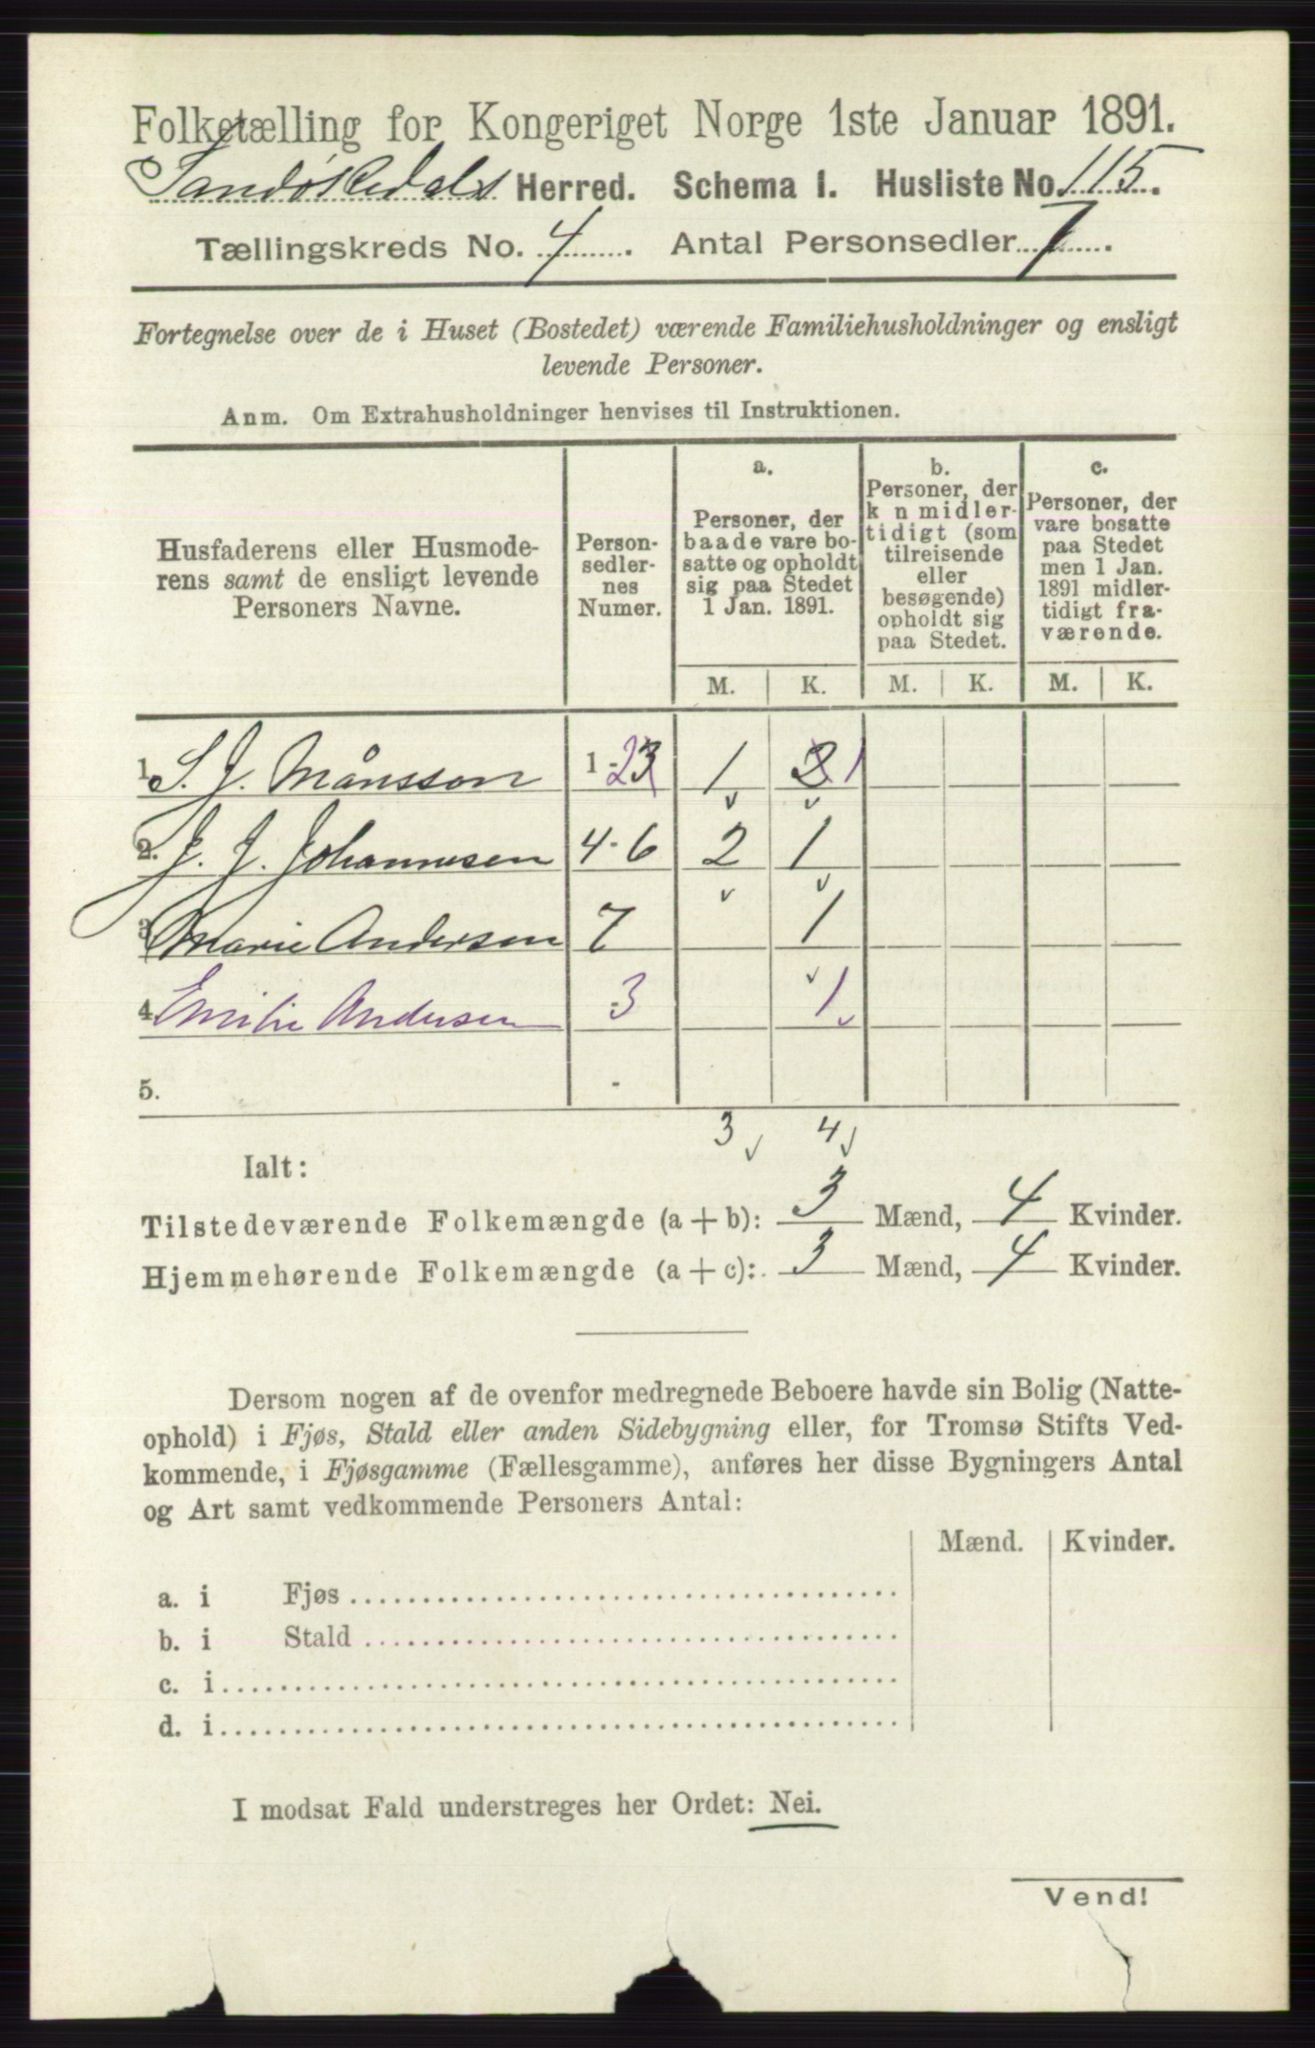 Folketælling for Kongeriget Norge 1ste Januar 1891.
Sandøkedals Herred. Schema I. Husliste No. 115.
Tællingskreds No. 4. Antal Personsedler 7.
Fortegnelse over de i Huset (Bostedet) værende Familiehusholdninger og ensligt
levende Personer.
Anm. Om Extrahusholdninger henvises til Instruktionen.
Husfaderens eller Husmode-
rens samt de ensligt levende
Personers Navne.
Person-
sedler-
nes
Numer.
a.
Personer, der
baade vare bo-
satte og opholdt
sig paa Stedet
1 Jan. 1891.
b.
Personer, der
k n midler-
tidigt (som
tilreisende
eller
besøgende)
opholdt sig
paa Stedet.
c.
Personer, der
vare bosatte
paa Stedet
men 1 Jan.
1891 midler-
tidigt fra-
værende.
M. K. M. K. M. K.
1. S. J. Månsson 1-2 1 1
2. J. J. Johannesen 4-6 2 1
3. Marie Andersen 7 1
4. Emilie Andersen 3 1
5.
3 4
Ialt:
Tilstedeværende Folkemængde (a + b): 3 Mænd, 4 Kvinder.
Hjemmehørende Folkemængde (a + c): 3 Mænd, 4 Kvinder.
Dersom nogen af de ovenfor medregnede Beboere havde sin Bolig (Natte-
ophold) i Fjøs, Stald eller anden Sidebygning eller, for Tromsø Stifts Ved-
kommende, i Fjøsgamme (Fællesgamme), anføres her disse Bygningers Antal
og Art samt vedkommende Personers Antal:
Mænd. Kvinder.
a. i Fjøs
b. i Stald
c. i
d. i
I modsat Fald understreges her Ordet: Nei.
Vend!